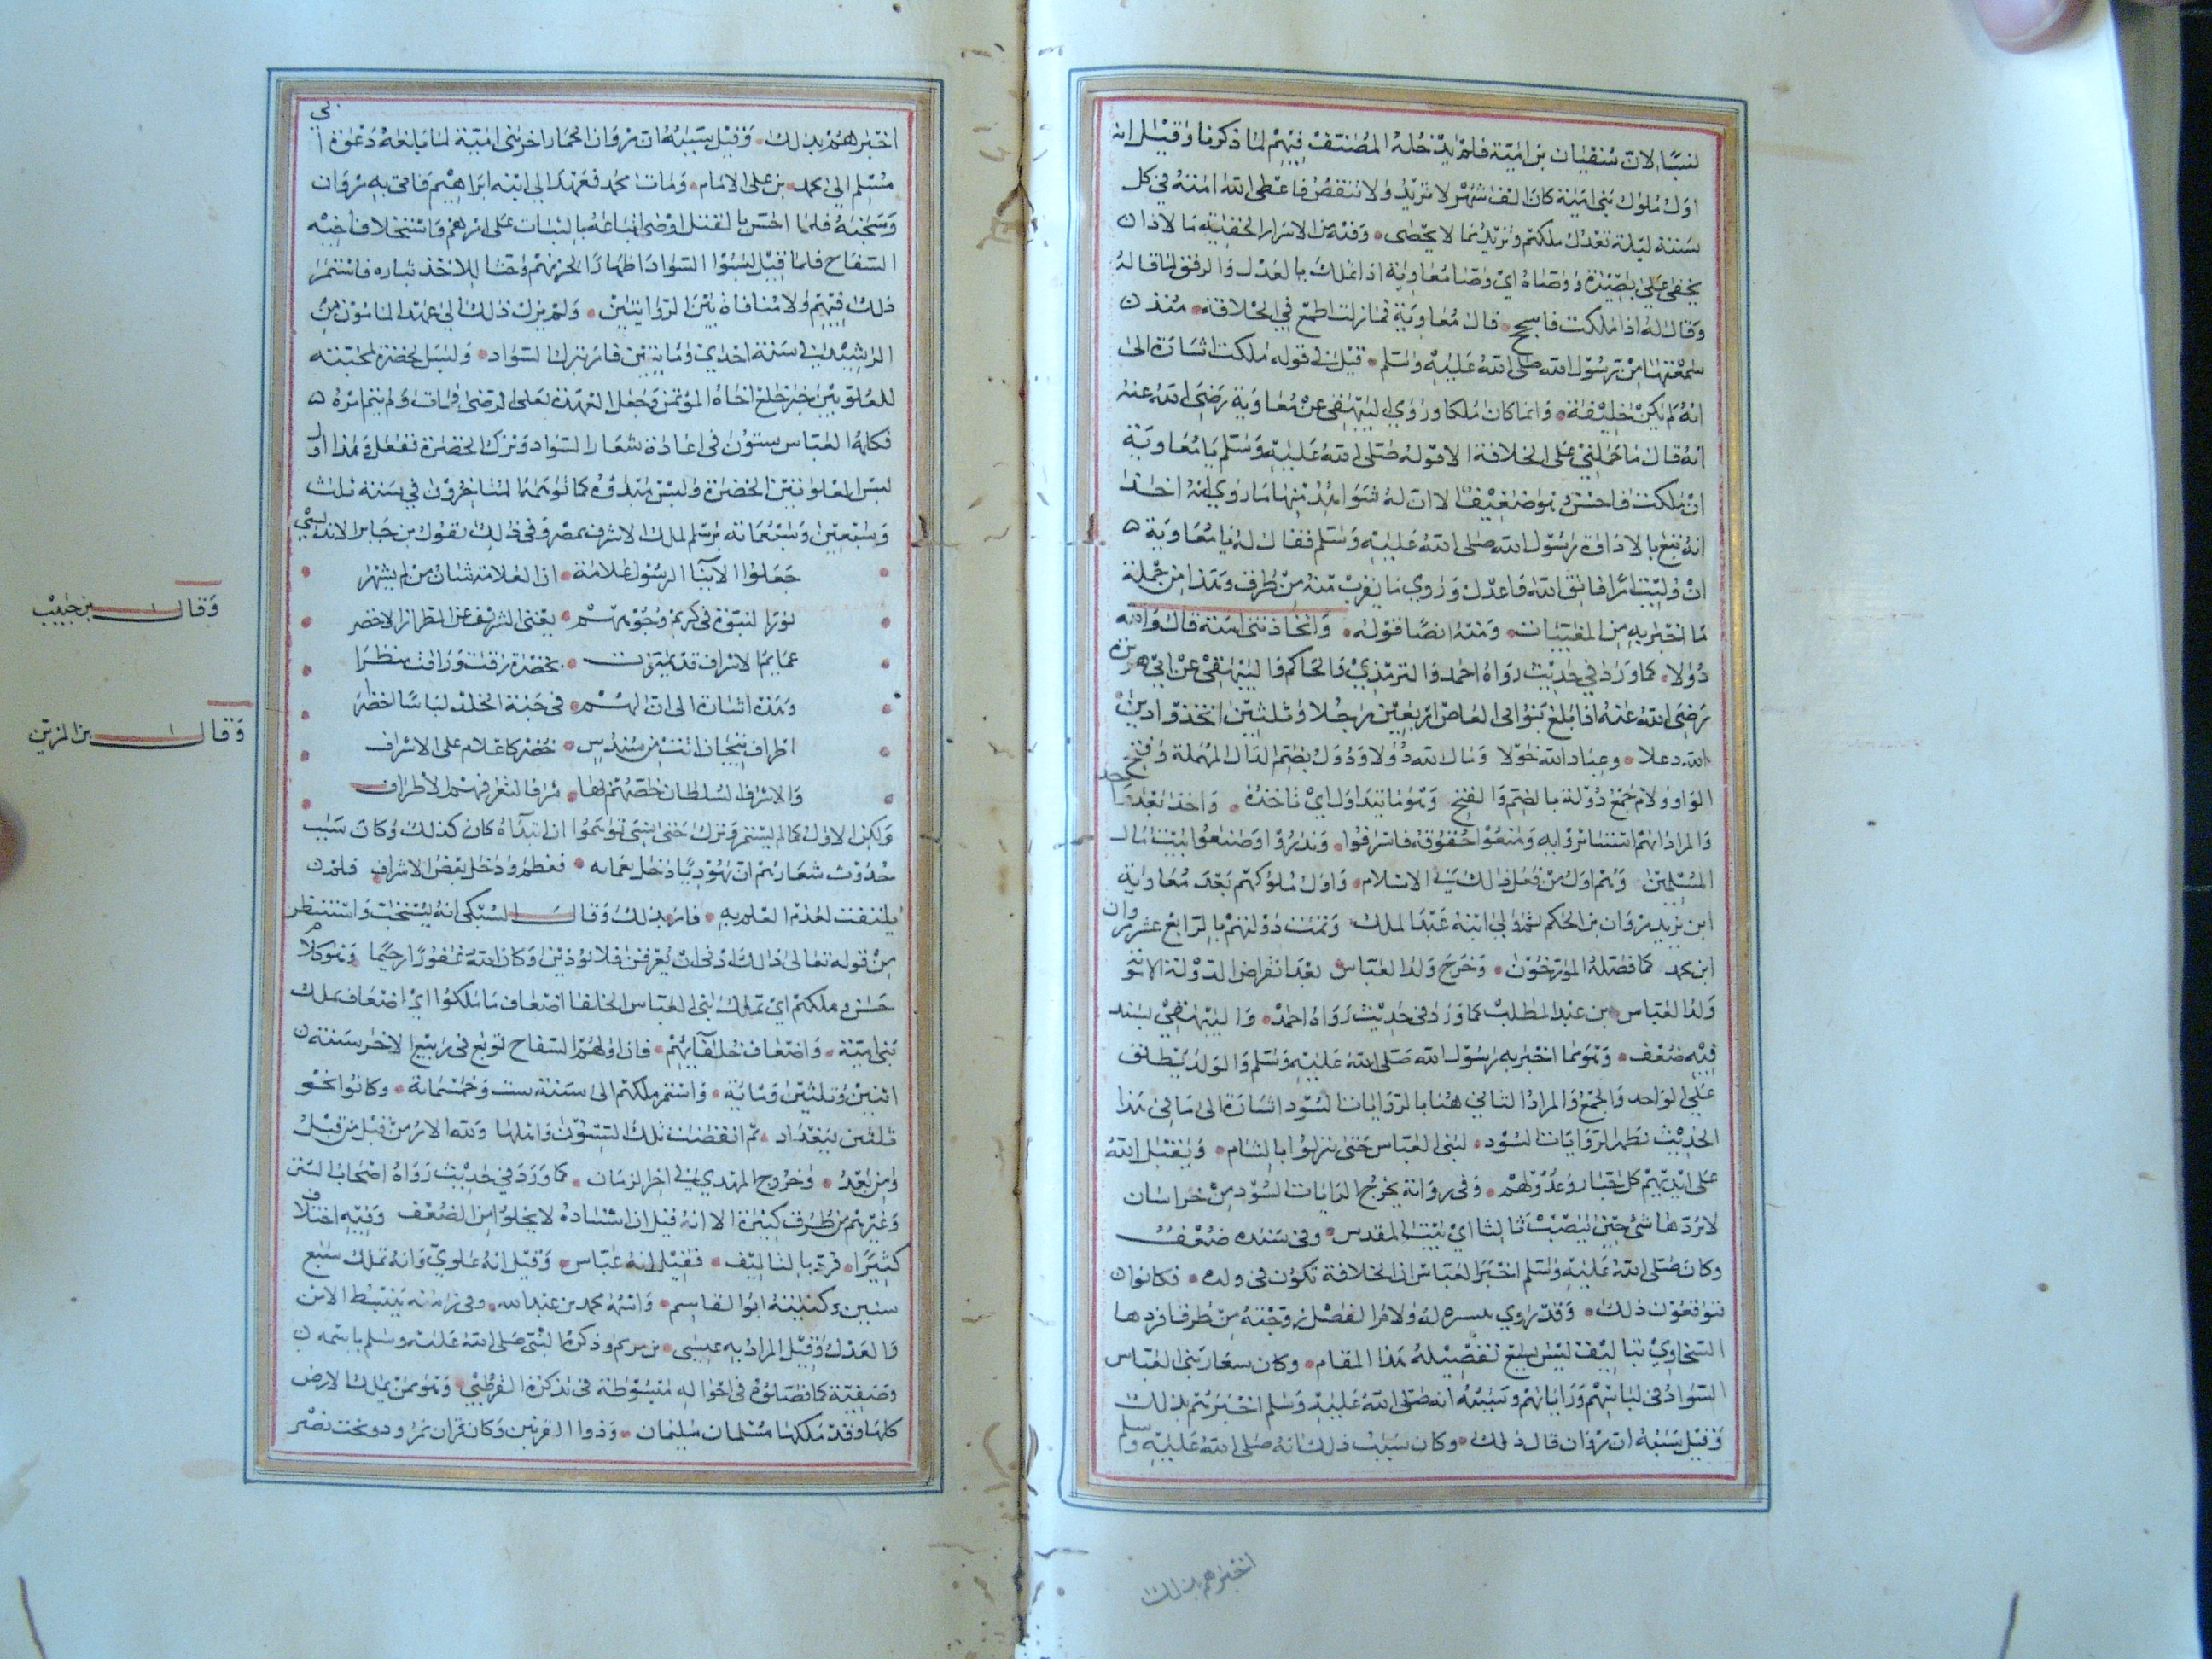 لنسبا لان سفيان بن امية فلم يدخله المصنف فيهم لما ذكرنا وقيل انه
اول ملوك بني امية كان الف شهر لا تزيد ولا تنقص فاعطى الله امته في كل
سنة ليلة تعدل ملكهم وتزيد بما لا يحصى وفيه من الاسرار الخفية ما لا
يخفى على بصيرة ووصاه اي وصا معاوية اذا تملك بالعدل والرفق لما قاله
وقال له اذا ملكت فاسجح قال معاوية فما زلت اطمع في الخلافة منذ
سمعتها من رسول الله صلى الله عليه وسلم قيل في قوله ملكت اشارة الى
انه لم يكن خليفة وانما كان ملكا وروي البيهقي عن معاوية رضي الله عنه
انه قال ما حملني على الخلافة الا قوله صلى الله عليه وسلم يا معاوية
ان ملكت فاحسن وهو ضعيف الا ان له شواهد منها ما روي انه اخذ
انه تتبع بالاداوة رسول الله صلى الله عليه وسلم فقال له يا معاوية
ان وليت امرا فاتق الله واعدل وروي ما يقرب منه من طرف وهذا من جملة
ما اخبر به من المغيبات ومنه ايضا قوله واتخاذ بني امية مال الله
دولا كما ورد في حديث رواه احمد والترمذي والحاكم والبيهقي عن ابي هريرة
رضي الله عنه اذا بلغ بنوا ابى العاص اربعين رجلا وثلثين اتخذوا دين
الله دغلا وعباد الله خولا ومال الله دولا ودول بضم الدال المهملة وفتح
الواو ولام جمع دولة بالضم والفتح وهو ما يتداول اي تاخذه واحد بعد واحد
والمراد انهم استاثروا به ومنعوا حقوقه فاسرفوا وبذروا وضيعوا بيت مال
المسلمين وهم اول من فعل ذلك في الاسلام واول ملوكهم بعد معاوية
ابن يزيد مروان بن الحكم ثم ولي ابنه عبد الملك وتمت دولتهم بالرابع عشر مروان
ابن محمد كما فصله المورخون وخرج ولد العباس بعد انقراض الدولة الاموية
ولد العباس بن عبد المطلب كما ورد في حديث رواه احمد والبيهقي بسند
فيه ضعف وهو مما اخبر به رسول الله صلى الله عليه وسلم والولد يطلق
على الواحد والجمع والمراد الثاني هنا بالرايات السود اشارة الى ما في هذا
الحديث تظهر الرايات السود لبني العباس حتى ينزلوا بالشام ويقتل الله
على ايديهم كل جبار وعدو لهم وفي رواية يخرج الرايات السود من خراسان
لا يردها شئ حتى تنصب بايليا اي بيت المقدس وفي سنده ضعف
وكان صلى الله عليه وسلم اخبر العباس ان الخلافة تكون في ولده فكانوا
يتوقعون ذلك وقد روي له ولام الفضل زوجته من طرف افردها
السخاوي بتاليف ليس يسع تفصيله هذا المقام وكان شعار بني العباس
السواد في لباسهم وراياتهم وسببه انه صلى الله عليه وسلم اخبرهم بذلك
وقيل سببه ان مروان قال ذلك وكان سبب ذلك انه صلى الله عليه وسلم
اخبرهم بذلك
اخبرهم بذلك وقيل سببه ان مروان الحمار اخر بني امية لما بلغه دعوة ابي
مسلم الى محمد بن على الامام ومات محمد فعهد الى ابنه ابراهيم فاتى به مروان
وسجنه فلما احس بالقتل اوصى اتباعه بالثبات على امرهم واستخلاف اخيه
السفاح فلما قتل لبسوا السواد اظهارا لحزنهم وحثا للاخذ بثاره فاستمر
ذلك فيهم ولا منافاة بين الروايتين ولم يزل ذلك الى عهد المامون بن
الرشيد في سنة احدى ومايتين فامر بترك السواد ولبس الخضرة لمحبته
للعلويين حين خلع اخاه المؤتمن وجعل العهد لعلى الرضى فمات ولم يتم امره
فكلمه العباسيون في اعادة شعار السواد وترك الخضرة ففعل وهذا اول
لبس العلويين الخضرة وليس مبدؤه كما توهمه المتاخرون في سنة ثلث
وسبعين وسبعماية برسم الملك الاشرف بمصر وفي ذلك يقول بن جابر الاندلسي
جعلوا الابنا الرسول علامة ان العلامة شان من لم يشهر
نور النبوة في كريم وجوههم يغنى الشريف عن الطراز الاخضر
وقال بن حبيب
عمايم الاشراف قد تميزت بخضرة رقت وراقت منظرا
وهذه اشارة الى ان لهم في جنة الخلد لباسا اخضرا
وقال بن المزين
اطراف تيجان اتت من سندس خضر كاعلام على الاشراف
والاشرف السلطان خصهم بها شرفا لنعرفهم من الاطراف
ولكن الاول كما لم يستمر وترك حتى نسي توهموا ان ابتداه كان كذلك وكان سبب
حدوث شعارهم ان يهوديا دخل بعمامه فعظم ودخل بعض الاشراف فلم
يلتفت لعدم العلم به فامر بذلك وقال السبكى انه يستحب واستنبط
من قوله تعالى ذلك ادنى ان يعرفن فلا يؤذين وكان الله غفورا رحيما وهو كلام
حسن وملكهم اي تملك بنى العباس الخلفا اضعاف ما ملكوا اي اضعاف ملك
بني امية واضعاف خلفآيهم فان اولهم السفاح بويع في ربيع الاخر سنة
اثنين وثلثين ومايه واستمر ملكهم الى سنة ست وخمسماية وكانوا نحو
ثلثين ببغداد ثم انقضت تلك السنون واهلها ولله الامر من قبل ومن قبل
ومن بعد وخروج المهدي في اخر الزمان كما ورد في حديث رواه اصحاب السنن
وغيرهم من طرف كبيرة الا انه قيل ان اسناده لا يخلوا من الضعف وفيه اختلاف
كثيرا فرد بالتاليف فقيل انه عباس وقيل انه علوي وانه تملك سبع
سنين وكنيته ابو القاسم واسمه محمد بن عبد الله وفي زمانه ينبسط الامن
والعدل وقيل المراد به عيسى بن مريم وذكره النبي صلى الله عليه وسلم باسمه
وصفته كما فصلوه في احواله مبسوطة في تذكرة القرطبي وهو ممن يملك الارض
كلها وقد ملكها مسلمان سليمان وذوا القرنين وكافران نمرود وبخت نصر